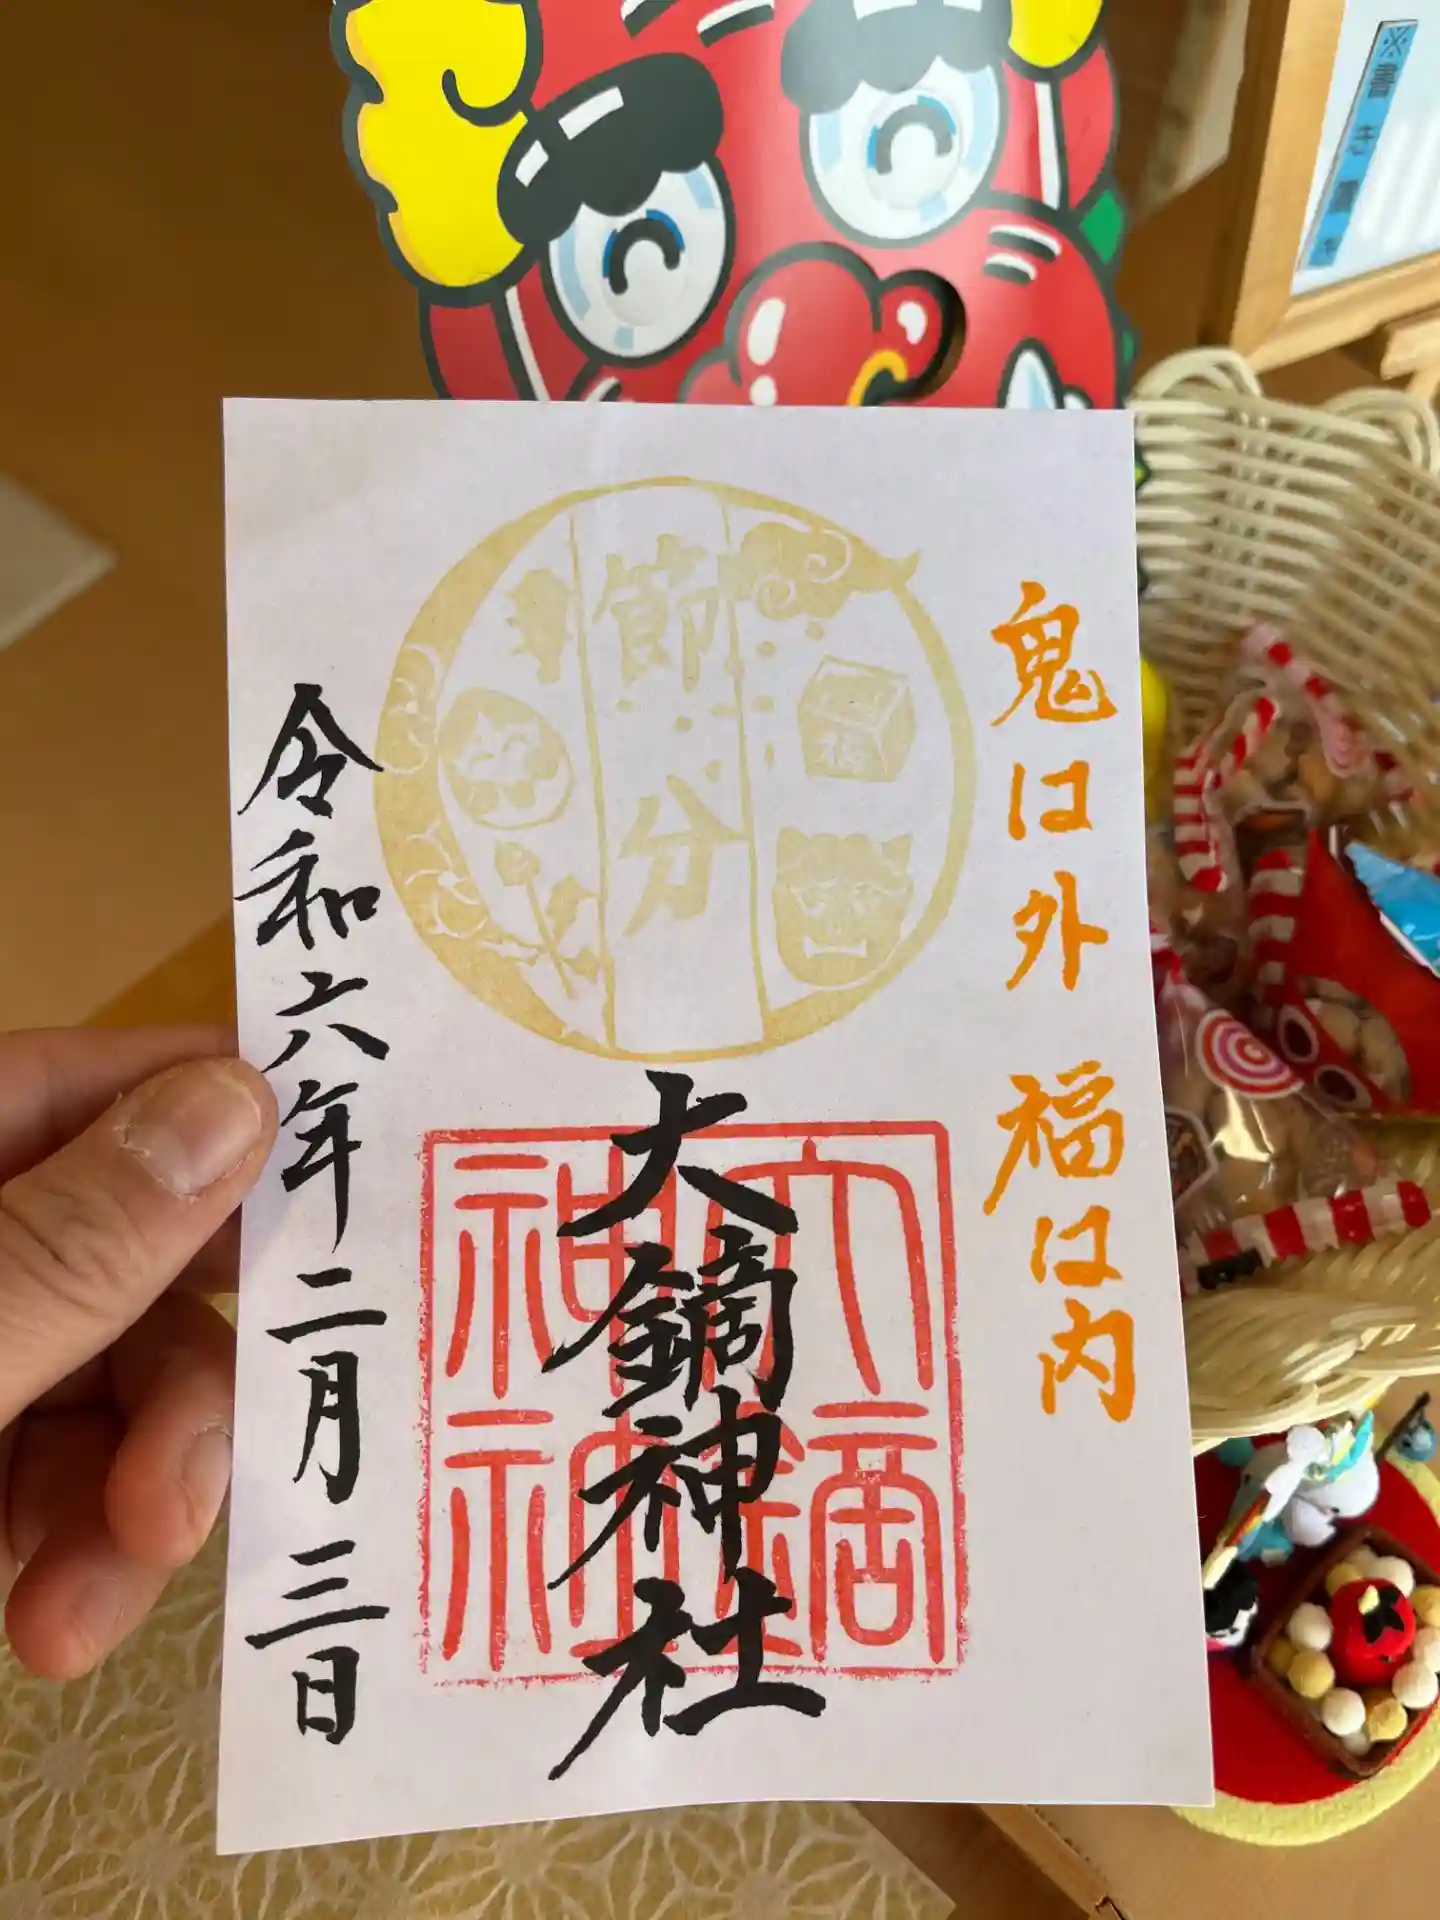 鬼は外 福は内
節分
福
大鏑神社
大鏑
神社
令和六年二月三日